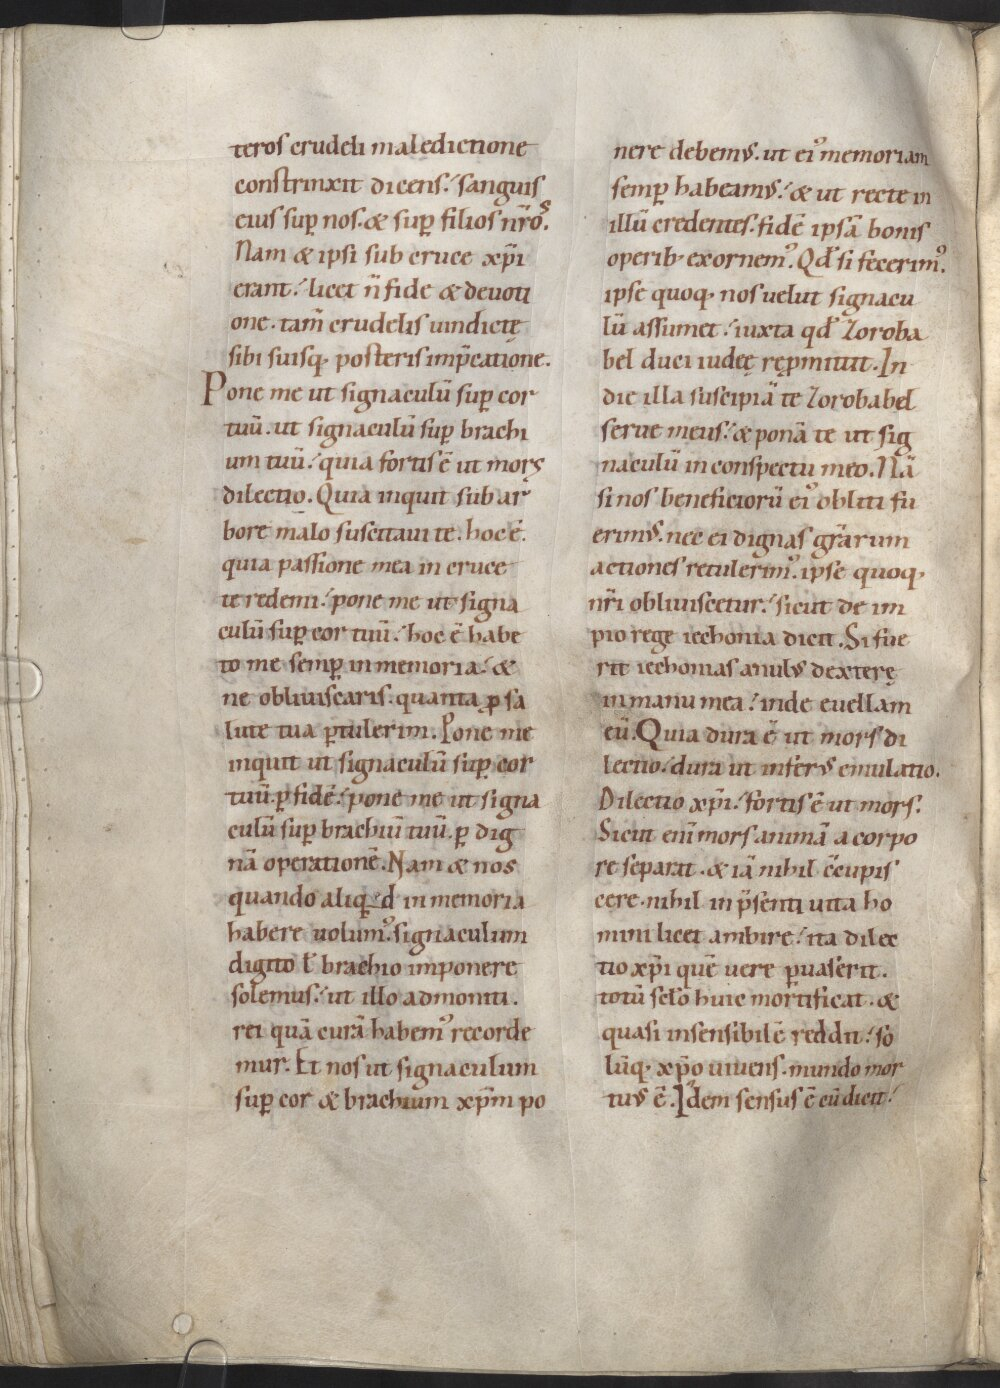 teros crudeli maledictione
constrinxit dicens. sanguis
eius sup̄ nos. & sup̄ filios nr̄os.
Nam & ipsi sub cruce xp̄i
erant. licet n̄ fide & deuoti
one. tam̄ crudelis uindictę
sibi suisq; posteris imp̄catione.
Pone me ut signaculū sup̄ cor
tuū. ut signaculū sup̄ brachi
um tuū. quia fortis ē ut mors
dilectio. Quia inquit sub ar
bore malo suscitaui te. hoc ē.
quia passione mea in cruce
te redemi. pone me ut signa
culū sup̄ cor tuū. hoc ē habe
to me semp̄ in memoria. &
ne obliuiscaris. quanta ꝓ sa
lute tua ꝑtulerim. Pone me
inquit ut signaculū sup̄ cor
tuū. ꝑ fidē. pone me ut signa
culū sup̄ brachiū tuū. ꝑ dig
nā operationē. Nam & nos
quando aliq̄d in memoria
habere uolumꝰ. signaculum
digito ł brachio imponere
solemus. ut illo admoniti.
rei quā curā habemꝰ recorde
mur. Et nos ut signaculum
sup̄ cor & brachium xp̄m po
nere debemus. ut eiꝰ memoriam
semp̄ habeamus. & ut recte in
illū credentes. fidē ipsā bonis
operib; exornemꝰ. Qd̄ si fecerimꝰ.
ipse quoq; nos uelut signacu
lū assumet. iuxta qd̄ Zoroba
bel duci iudeę rep̄mittit. In
die illa suscipiā te Zorobabel
serue meus. & ponā te ut sig
naculū in conspectu meo. Nā
si nos beneficiorū eiꝰ obliti fu
erimus. nec ei dignas gr̄arum
actiones retulerimꝰ. ipse quoq;
nr̄i obliuiscetur. sicut de im
pio rege iechonia dicit. Si fue
rit iechonias anulus dexterę
in manu mea. inde euellam
eū. Quia dura ē ut mors di
lectio. dura ut inferus emulatio.
Dilectio xp̄i. fortis ē ut mors.
Sicut enī mors animā a corpo
re separat. & iā nihil c̄cupis
cere. nihil in p̄senti uita ho
mini licet ambire. ita dilec
tio xp̄i quē uere ꝑuaserit.
totū sc̄lo huic mortificat. &
quasi insensibilē reddit. so
lūq; xp̄o uiuens. mundo mor
tuus ē. Idem sensus ē cū dicit.